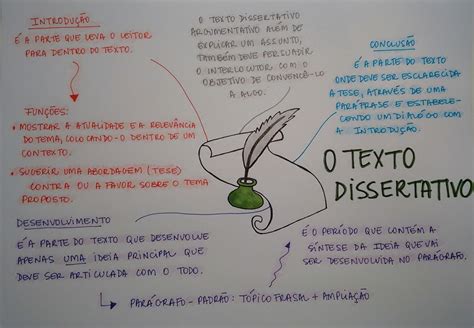 INTRODUÇÃO
É A PARTE QUE LEVA O LEITOR
PARA DENTRO DO TEXTO.
FUNÇÕES:
• MOSTRAR A ATUALIDADE E A RELEVÂNCIA
DO TEMA, COLOCANDO-O DENTRO DE UM
CONTEXTO.
• SUGERIR UMA ABORDAGEM (TESE)
CONTRA OU A FAVOR SOBRE O TEMA
PROPOSTO.
O TEXTO DISSERTATIVO
ARGUMENTATIVO ALÉM DE
EXPLICAR UM ASSUNTO,
TAMBÉM DEVE PERSUADIR
O INTERLOCUTOR COM O
OBJETIVO DE CONVENCÊ-LO
A ALGO.
CONCLUSÃO
É A PARTE DO TEXTO
ONDE DEVE SER ESCLARECIDA
A TESE, ATRAVÉS DE UMA
PARÁFRASE E ESTABELE-
CENDO UM DIÁLOGO COM
A INTRODUÇÃO.
O TEXTO
DISSERTATIVO
DESENVOLVIMENTO
É A PARTE DO TEXTO QUE DESENVOLVE
APENAS UMA IDEIA PRINCIPAL QUE
DEVE SER ARTICULADA COM O TODO.
PARÁGRAFO-PADRÃO: TÓPICO FRASAL + AMPLIAÇÃO
É O PERÍODO QUE CONTÉM A
SÍNTESE DA IDEIA QUE VAI
SER DESENVOLVIDA NO PARÁGRAFO.